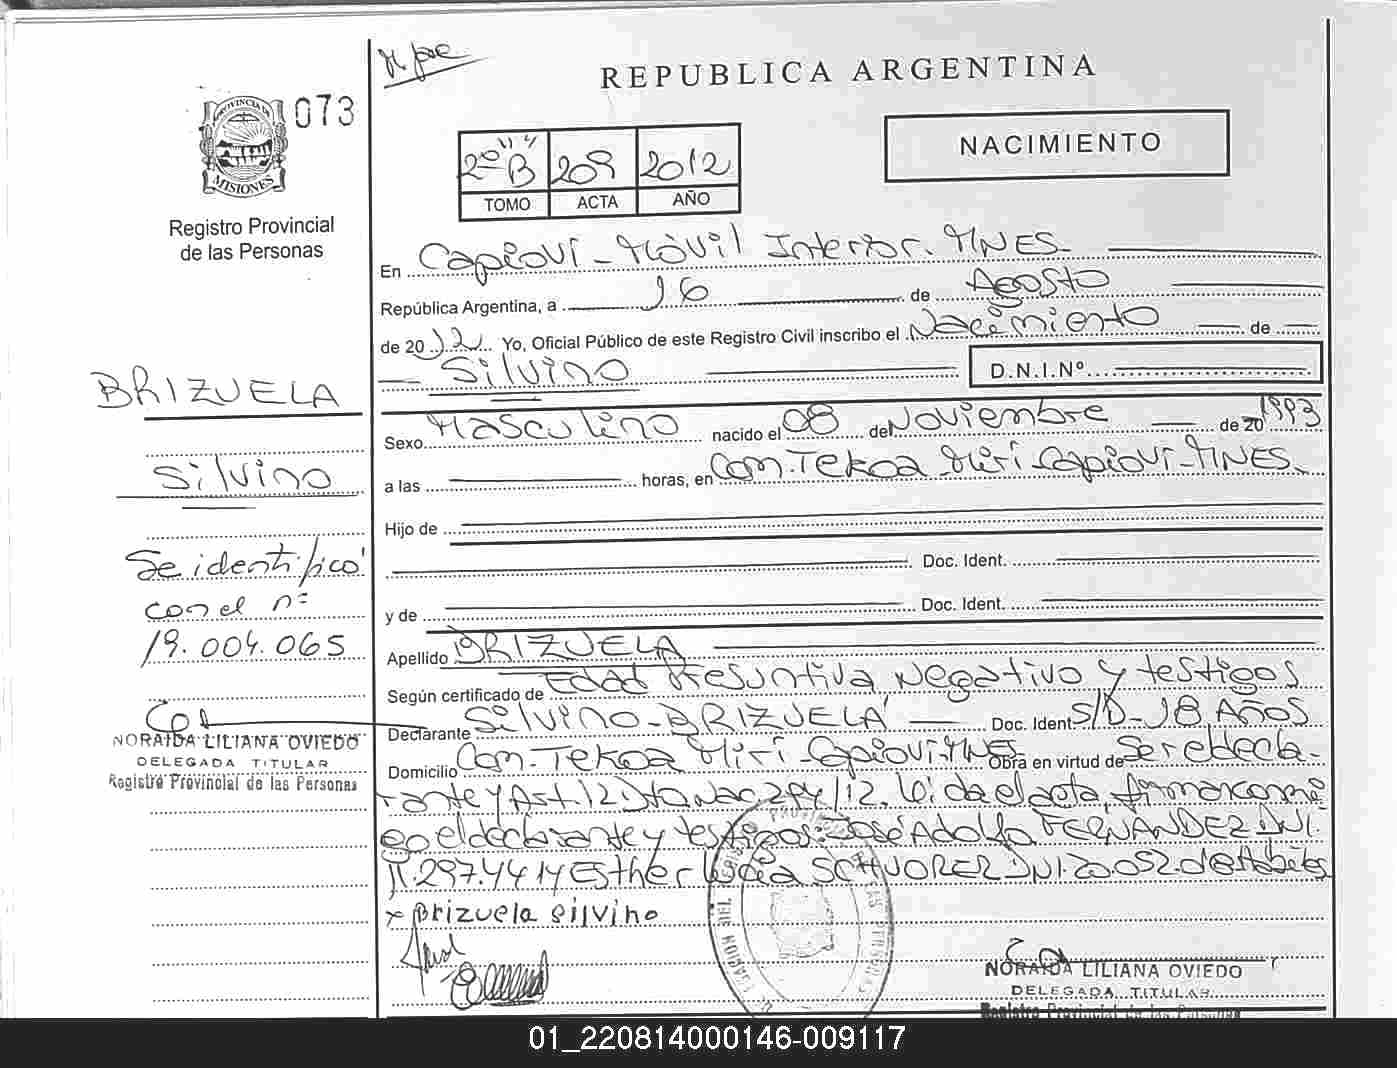 073
PROVINCIA DE
MISIONES
Registro Provincial
de las Personas
BRIZUELA
Silvino
Se identificó
con el nº
19.004.065
NORAIDA LILIANA OVIEDO
DELEGADA TITULAR
Registro Provincial de las Personas
REPUBLICA ARGENTINA
NACIMIENTO
2º B 209 2012
TOMO ACTA AÑO
En Capioví - Móvil Interior. MNES
República Argentina, a 16 de Agosto
de 2012 Yo, Oficial Público de este Registro Civil inscribo el Nacimiento de
Silvino D.N.I.Nº
Sexo Masculino nacido el 08 de Noviembre de 20 1993
a las horas, en Com. Tekoa Miri - Capioví - MNES.
Hijo de
Doc. Ident.
y de Doc. Ident.
Apellido BRIZUELA
Según certificado de Edad Presuntiva, Negativo y testigos
Declarante Silvino - BRIZUELA Doc. Ident. S/D - 18 AÑOS
Domicilio Com. Tekoa Miri - Capioví - MNES Obra en virtud de Ser el decla-
rante y Art. 12. Dto. Nac. 294/12. Leída el acta, firman conmi-
go el declarante y testigos: José Adolfo FERNANDEZ DNI.
11.297.441 y Esther SCHVORER DNI. 20.052.
x Brizuela silvino
NORAIDA LILIANA OVIEDO
DELEGADA TITULAR
Registro Provincial de las Personas
01_220814000146-009117